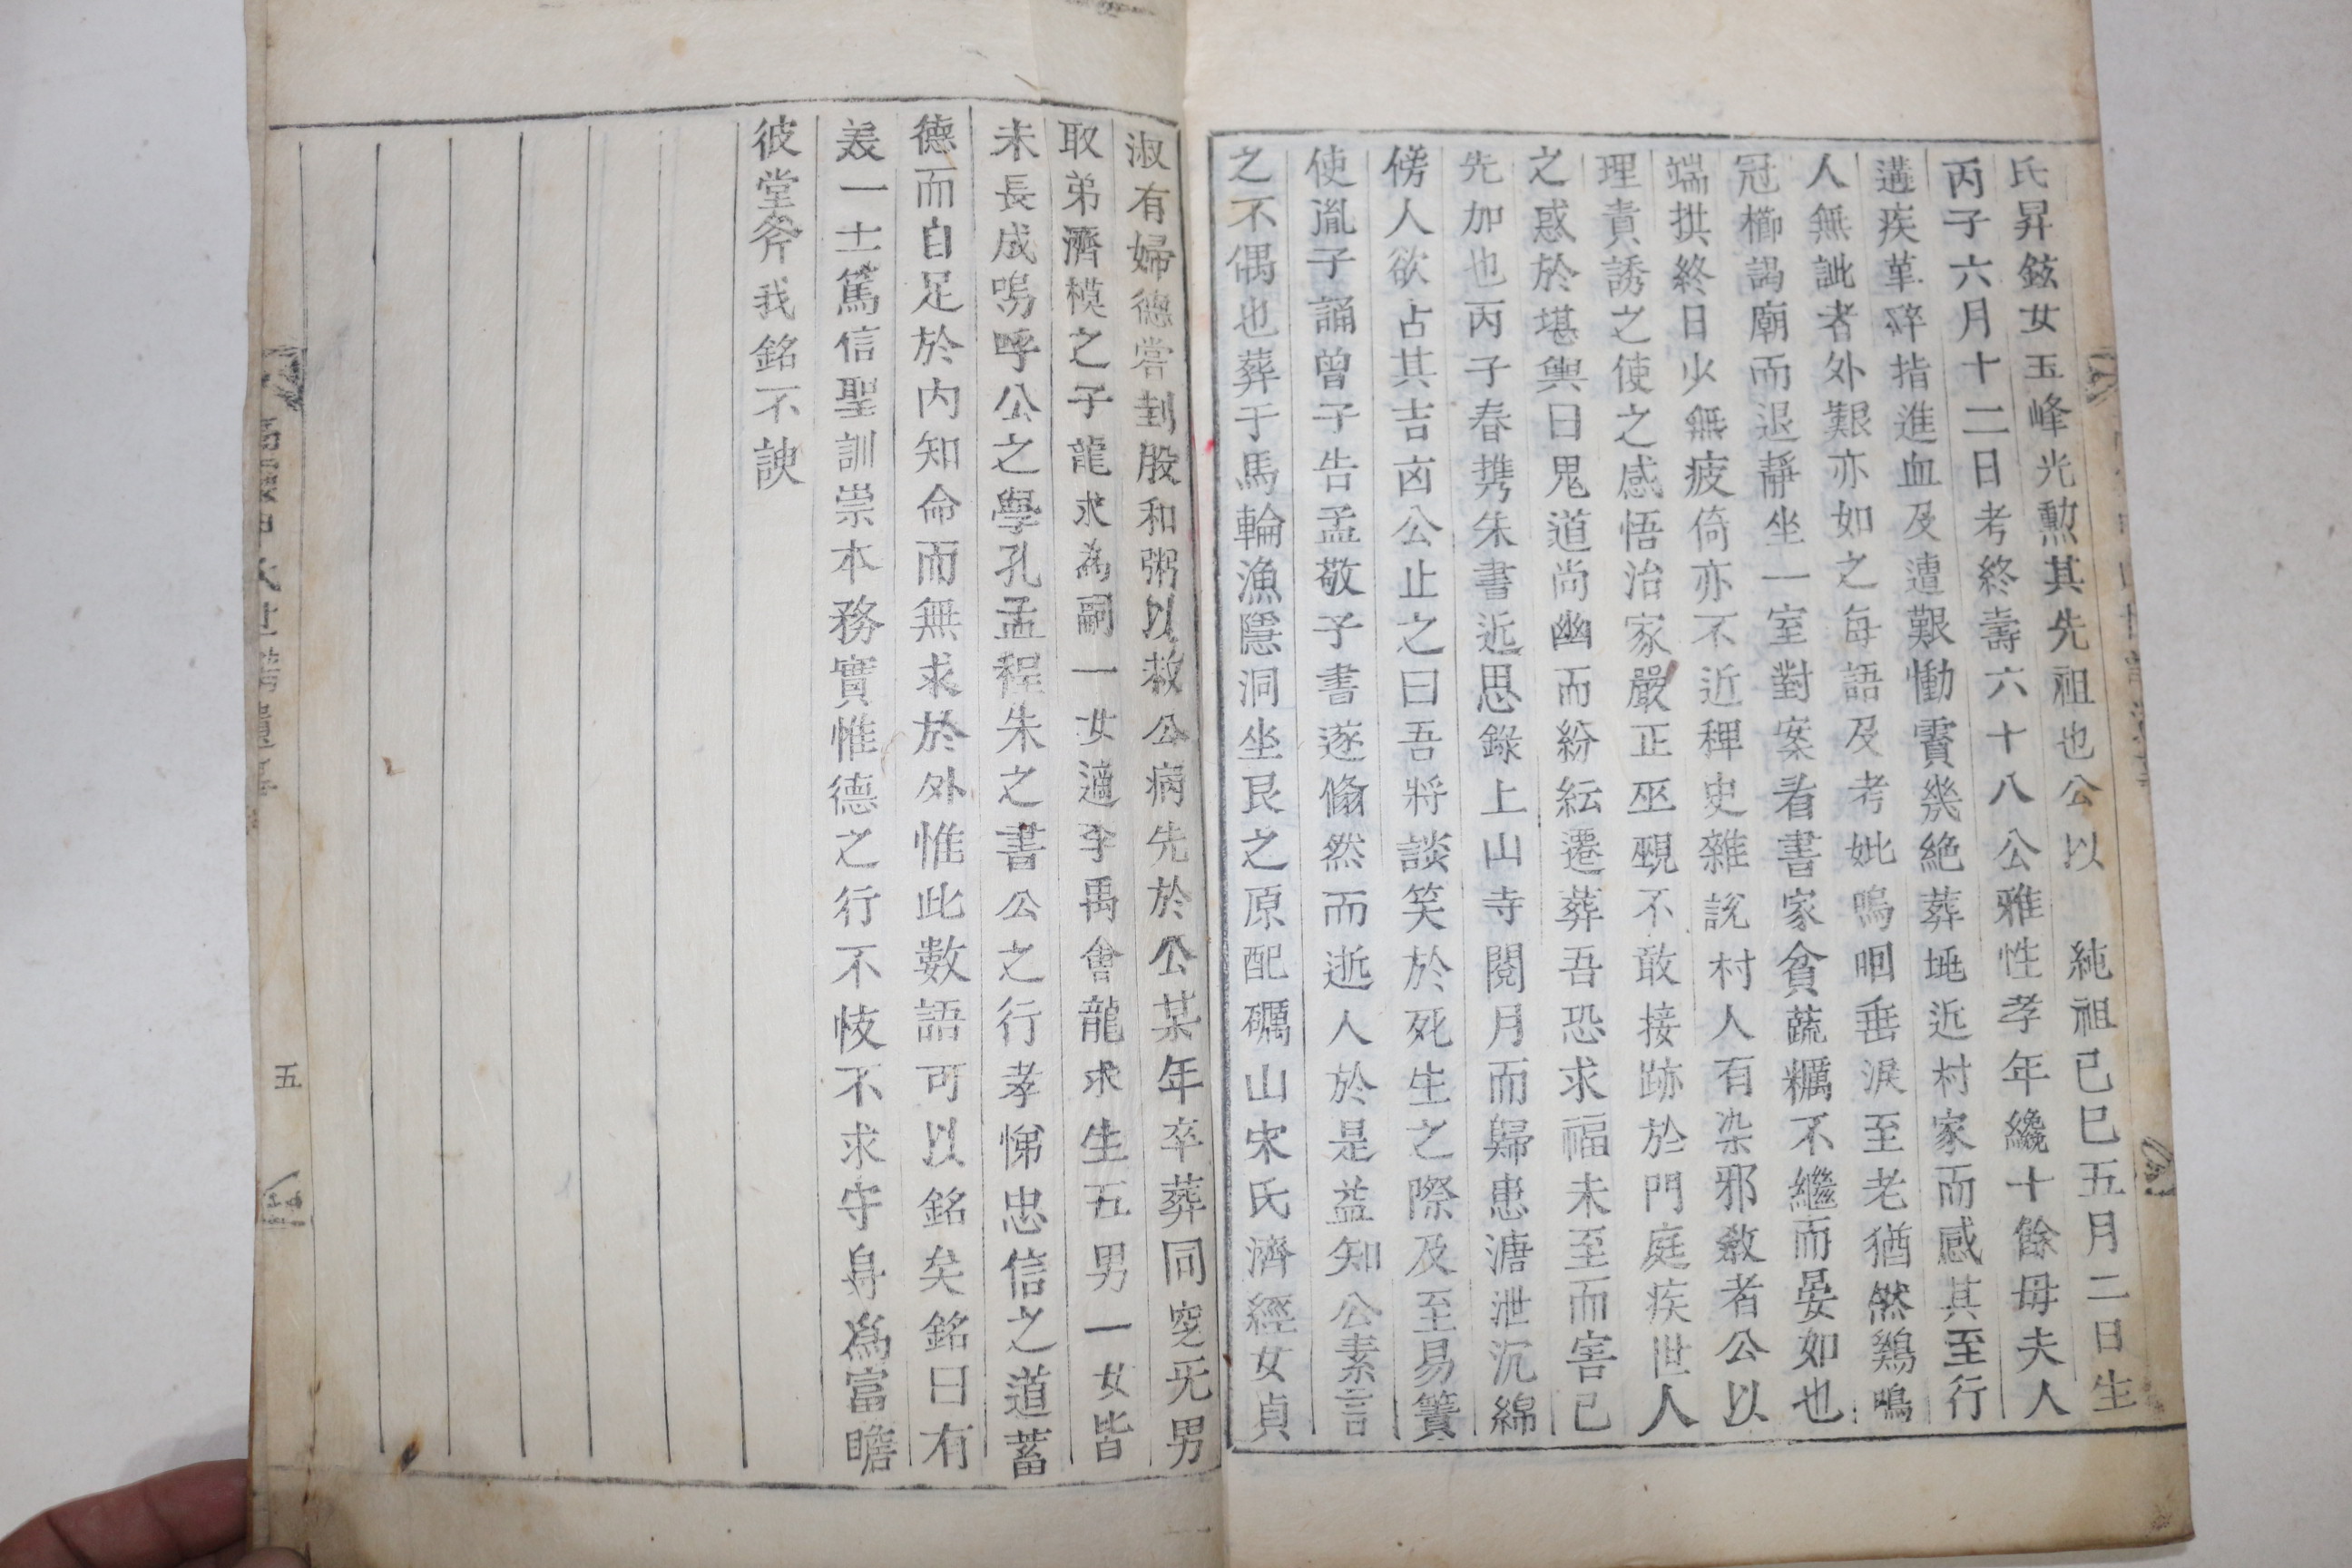 氏昇鉉女玉峰光勲其先祖也公以 純祖己巳五月二日生
丙子六月十二日考終壽六十八公雅性孝年纔十餘母夫人
遘疾革碎指進血及遭艱慟霣幾絶葬地近村家而感其至行
人無訿者外艱亦如之每語及考妣嗚咽垂淚至老猶然鷄鳴
冠櫛謁廟而退靜坐一室對案看書家貧蔬糲不繼而晏如也
端拱終日少無疲倚亦不近稗史雜說村人有染邪敎者公以
理責誘之使之感悟治家嚴正巫覡不敢接跡於門庭疾世人
之惑於堪輿曰鬼道尚幽而紛紜遷葬吾恐求福未至而害已
先加也丙子春携朱書近思錄上山寺閱月而歸患溏泄沉綿
傍人欲占其吉凶公止之曰吾將談笑於死生之際及至易簀
使胤子誦曾子告孟敬子書遂翛然而逝人於是益知公素言
之不偶也葬于馬輪漁隱洞坐艮之原配礪山宋氏濟經女貞
淑有婦德嘗刲股和粥以救公病先於公某年卒葬同窆旡男
取弟濟模之子龍求為嗣一女適李禹會龍求生五男一女皆
未長成嗚呼公之學孔孟程朱之書公之行孝悌忠信之道蓄
德而自足於內知命而無求於外惟此數語可以銘矣銘曰有
羙一士篤信聖訓崇本務實惟德之行不忮不求守身爲富瞻
彼堂斧我銘不諛
五